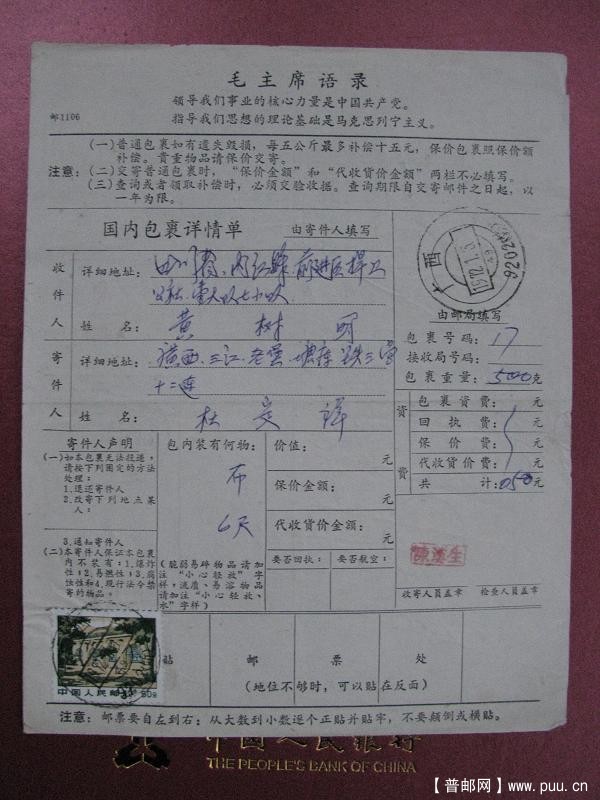 毛主席语录
领导我们事业的核心力量是中国共产党。
指导我们思想的理论基础是马克思列宁主义。
邮1106
注意：
(一)普通包裹如有遗失毁损，每五公斤最多补偿十五元，保价包裹照保价额
补偿。贵重物品请保价交寄。
(二)交寄普通包裹时，“保价金额”和“代收货价金额”两栏不必填写。
(三)查询或者领取补偿时，必须交验收据。查询期限自交寄邮件之日起，以
一年为限。
国内包裹详情单
由寄件人填写
收件人
详细地址：
四川省、内江县前进区捍卫
公社 七小队
姓名：
黄树明
寄件人
详细地址：
广西、三江、老堡
十二连
姓名：
杜
广西
1972.1.5
由邮局填写
包裹号码：17
接收局号码：
包裹重量：500克
资费
包裹资费： 元
回执费： 元
保价费： 元
代收货价费： 元
共计：050元
陈 生
收寄人员盖章
检查人员盖章
寄件人声明
(一)如本包裹无法投递，
请按下列固定的方法
处理：
1.退还寄件人
2.改寄下列地点某
人：
3.通知寄件人
(二)本寄件人保证本包裹
内不装有：1.爆炸
性；2.易燃性；3.腐
蚀性和4.现行法令禁
寄的物品。
包内装有何物：
布
6尺
(脆弱易碎物品请加
注“小心轻放”字
样，流质、易溶物品
请加注“小心轻放、
水”字样)
价值：
元
保价金额：
元
代收货价金额：
元
要否回执：
要否航空：
中国人民邮政
50分
贴邮票处
(地位不够时，可以贴在反面)
注意：邮票要自左到右：从大数到小数逐个正贴并贴牢，不要颠倒或横贴。
中国人民银行
THE PEOPLE'S BANK OF CHINA
【普邮网】www.puu.cn